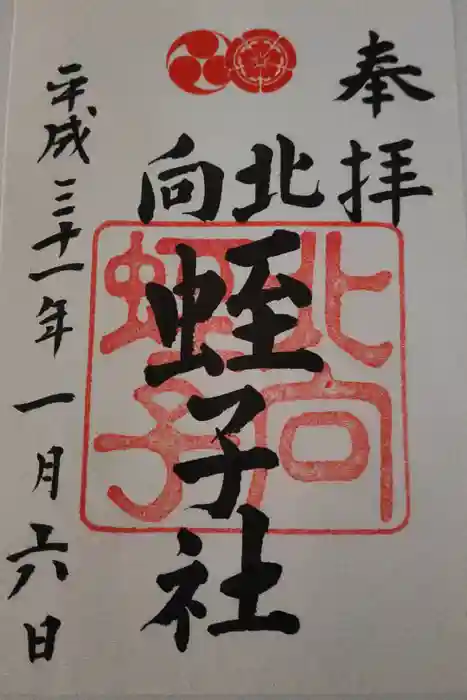 奉拝
北向
蛭子社
平成三十一年一月十六日
北向
蛭子